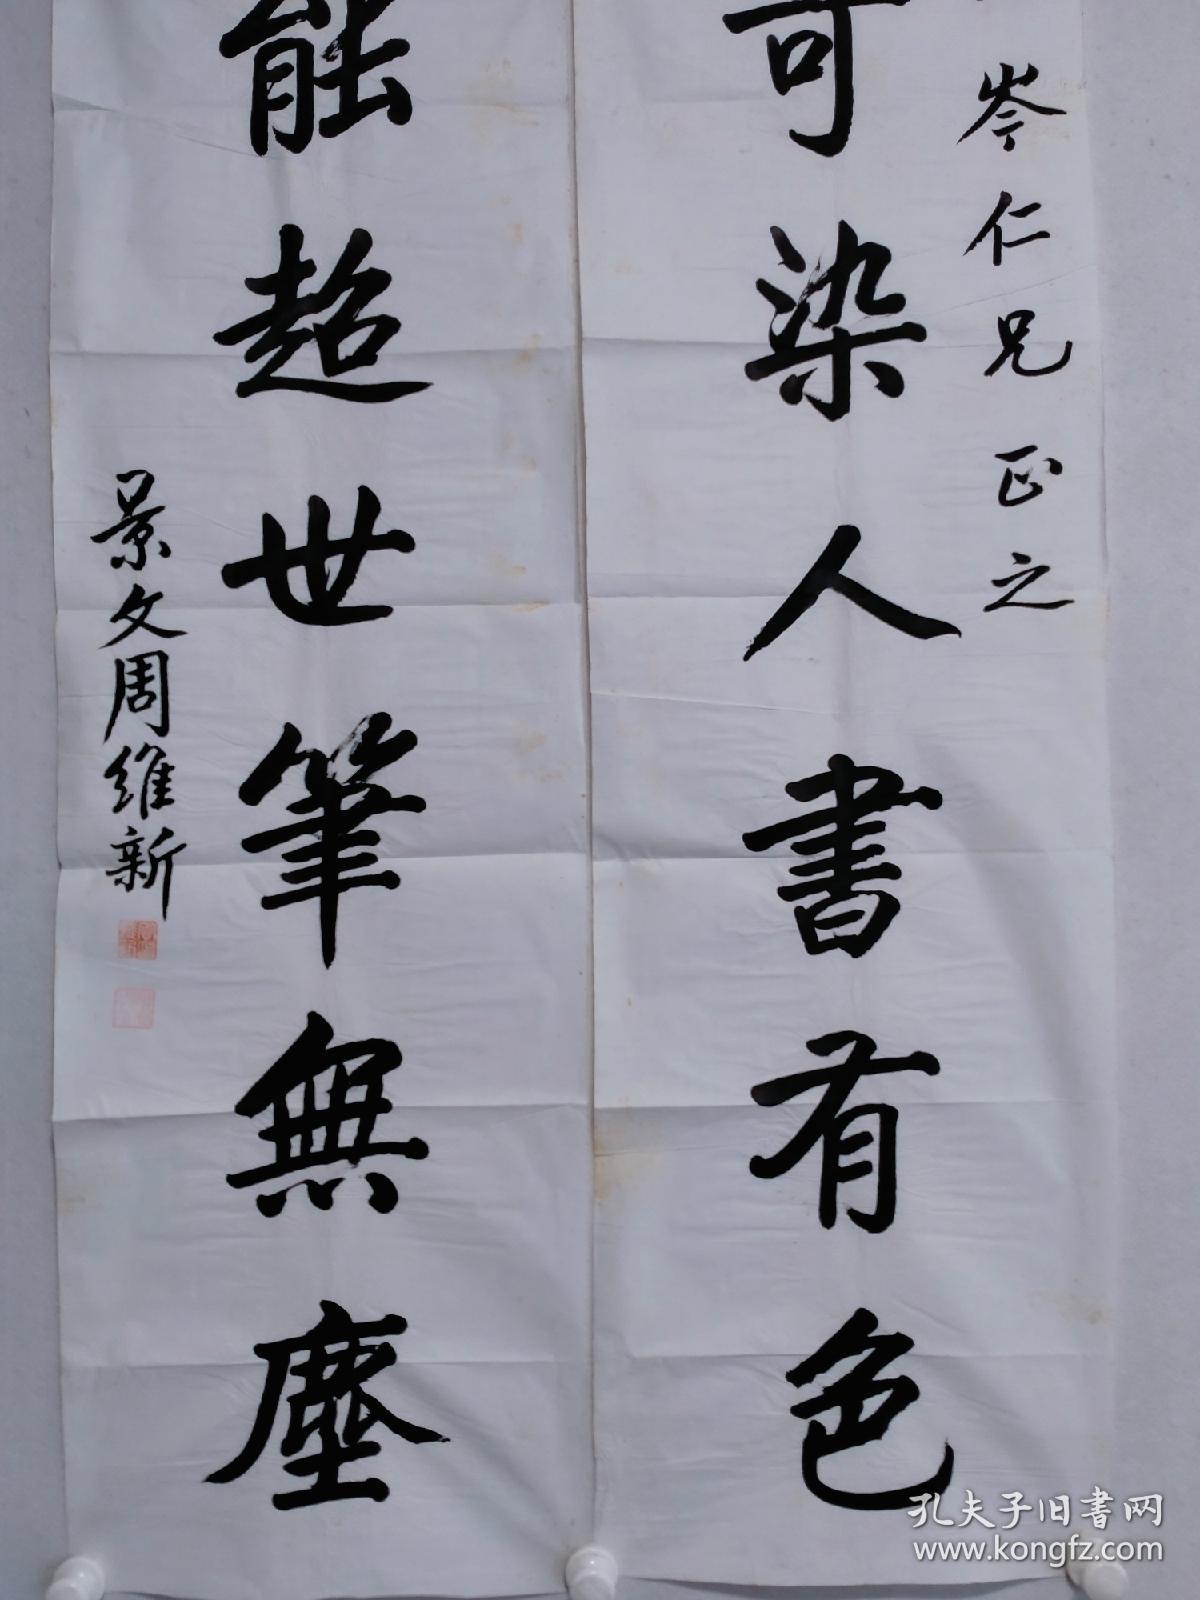 岑仁兄正之
可染人書有色
能超世筆無塵
景文周維新
孔夫子旧书网
www.kongfz.com